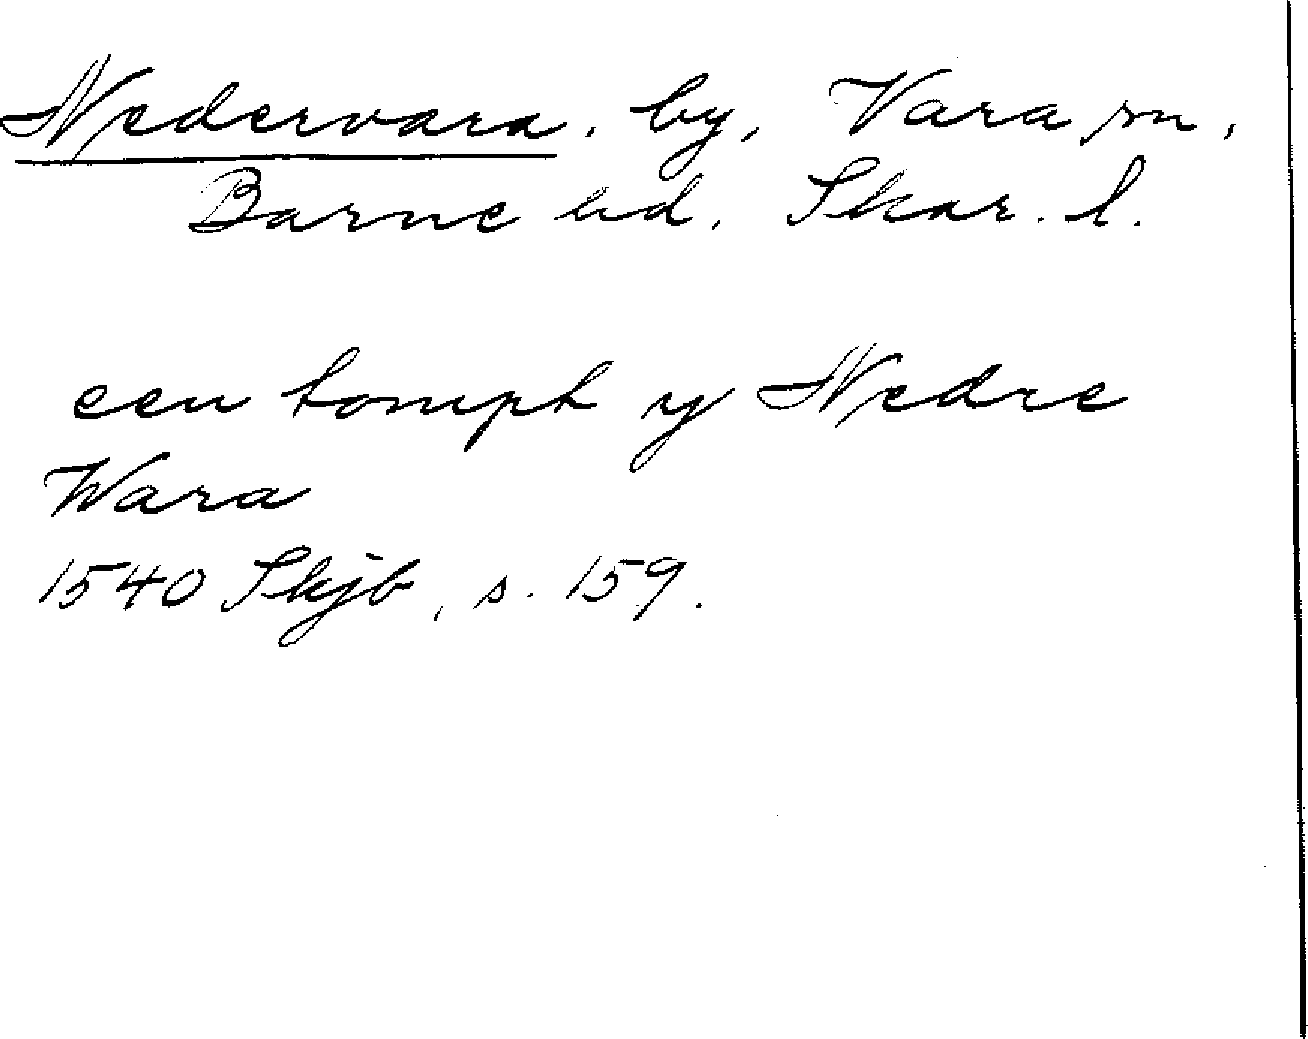 Nedervara, by, Vara sn,
Barne hd, Skar. l.
een tompt y Nedre
Wara
1540 Skjb, s. 159.